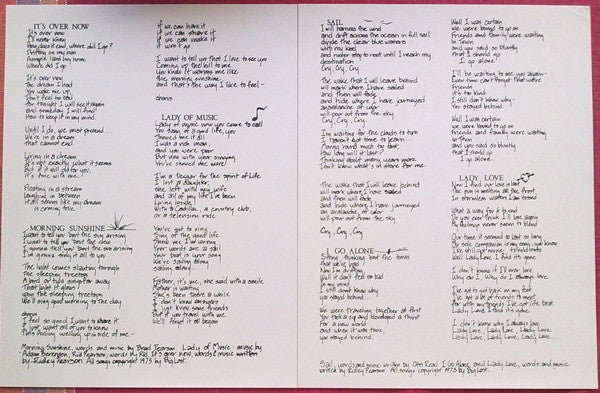 IT'S OVER NOW
It's over now
It's over now
I'll never know
How does it end, where did I go?
Drifting on my own
where did I go
It's over now
The dream I had
You woke me up
Don't feel too bad
For tonight I will see it again
and someday I will find
How to keep it in my mind
Until I do, we must pretend
We're in a dream
that cannot end
Living in a dream
It's not exactly what it seems
But if it will do for you,
it's fine with me
Floating in a stream
laughing in between
it all seems like my dream
is coming true
MORNING SUNSHINE
I want to tell you 'bout the sun arising
I want to tell you 'bout the dew
I'm gonna tell you 'bout the sun arising
I'm gonna sing it all to you
The light comes slanting through
the sleeping treetops
A bird or two sings far away
what light it gleams
upon the sleeping treetops
We'll sing good morning to the day
chorus
I feel so good I want to share it
I just want all of you to know
This feeling welling up inside of me
if we can have it
if we can share it
if we can make it
it won't go
I want to tell you that I love to see you
Coming up the hill to me
You kinda it warms me like
the morning sunshine
and that's the way I like to feel
chorus
LADY OF MUSIC
Lady of music now you came to call
You sang of a good life, you
showed me it all
I was a rich man,
and you were poor
But now with your singing
You've shined me more
I'm a beggar for the spirit of life
I lost a daughter,
she left with my wife
and all of my life I've been
living inside
With a Cadillac, a country club,
or a television ride
You've got to sing
Sing of the good life
Think we, I'm wrong
Your words are a sail
Your boat is your song
We're sailing along
sailing along
Father, it's me, she said with a smile
Mother is waiting
She's been there a while
I don't know answers
I just know some friends
But if you travel with me
We'll forget it all began
Morning Sunshine, words and music by Brad Pearson. Lady of Music: music by
Adam Berenson, Rid Pearson; words by Rid. It's over now, words & music written
by Ridley Pearson. All songs copyright 1973 by Big Lost.
SAIL
I will harness the wind
and drift across the ocean in full sail
divide the clear blue waters
with my keel
and never stop to rest until I reach my
destination
Cry, Cry, Cry
The wake that I will leave behind
will mark where I have sailed
and then will fade
and hide where I have journeyed
an avalanche of color
will pour out from the sky
Cry, Cry, Cry
I'm waiting for the clouds to turn
I haven't got time to learn
Moving round much too fast
How long will it last?
Thinking about many years more
Don't know what's in store for me
The wake that I will leave behind
will mark where I have sailed
and then will fade
and hide where I have journeyed
an avalanche of color
will pour out from the sky
Cry, Cry, Cry
I GO ALONE
Sitting thinking 'bout the times
that we've had
Now I'm drifting
Well it don't feel so bad
in my mind
I still don't know why
you stayed behind
We were traveling together at first
for a new world
and when it was time,
you stayed behind
Well I was certain
we were bound to go on
Friends and family were waiting
in Town
and you said so bluntly
that I should go
I go alone
I'll be waiting to see you again
Friends
it's too kind
I still don't know why
You stayed behind
Well I was certain
we were bound to go on
Friends and family were waiting
in Town
and you said so bluntly
that I should go
I go alone
LADY, LOVE
Now I find our love is lost
The sun is melting all the frost
In stormless waters I am tossed
What a way for it to end
Do you ever think I'll love again
My feelings never seem to blend
Our time it seemed to last so long
My sole companion is my song
Well Lady Love, I find it's gone
I don't know if I'll ever love
Why do I, Why do I always love
I've got to get back on my feet
I've got a lot of friends to meet
Lady Love I find it's gone
I don't know why I always love
Lady Love, Lady Love, Lady Love
Lady Love, Lady Love, Lady Love
Sail words and music written by Otis Read. I Go Alone and Lady Love, words and music
written by Ridley Pearson. All songs copyright 1973 by Big Lost.